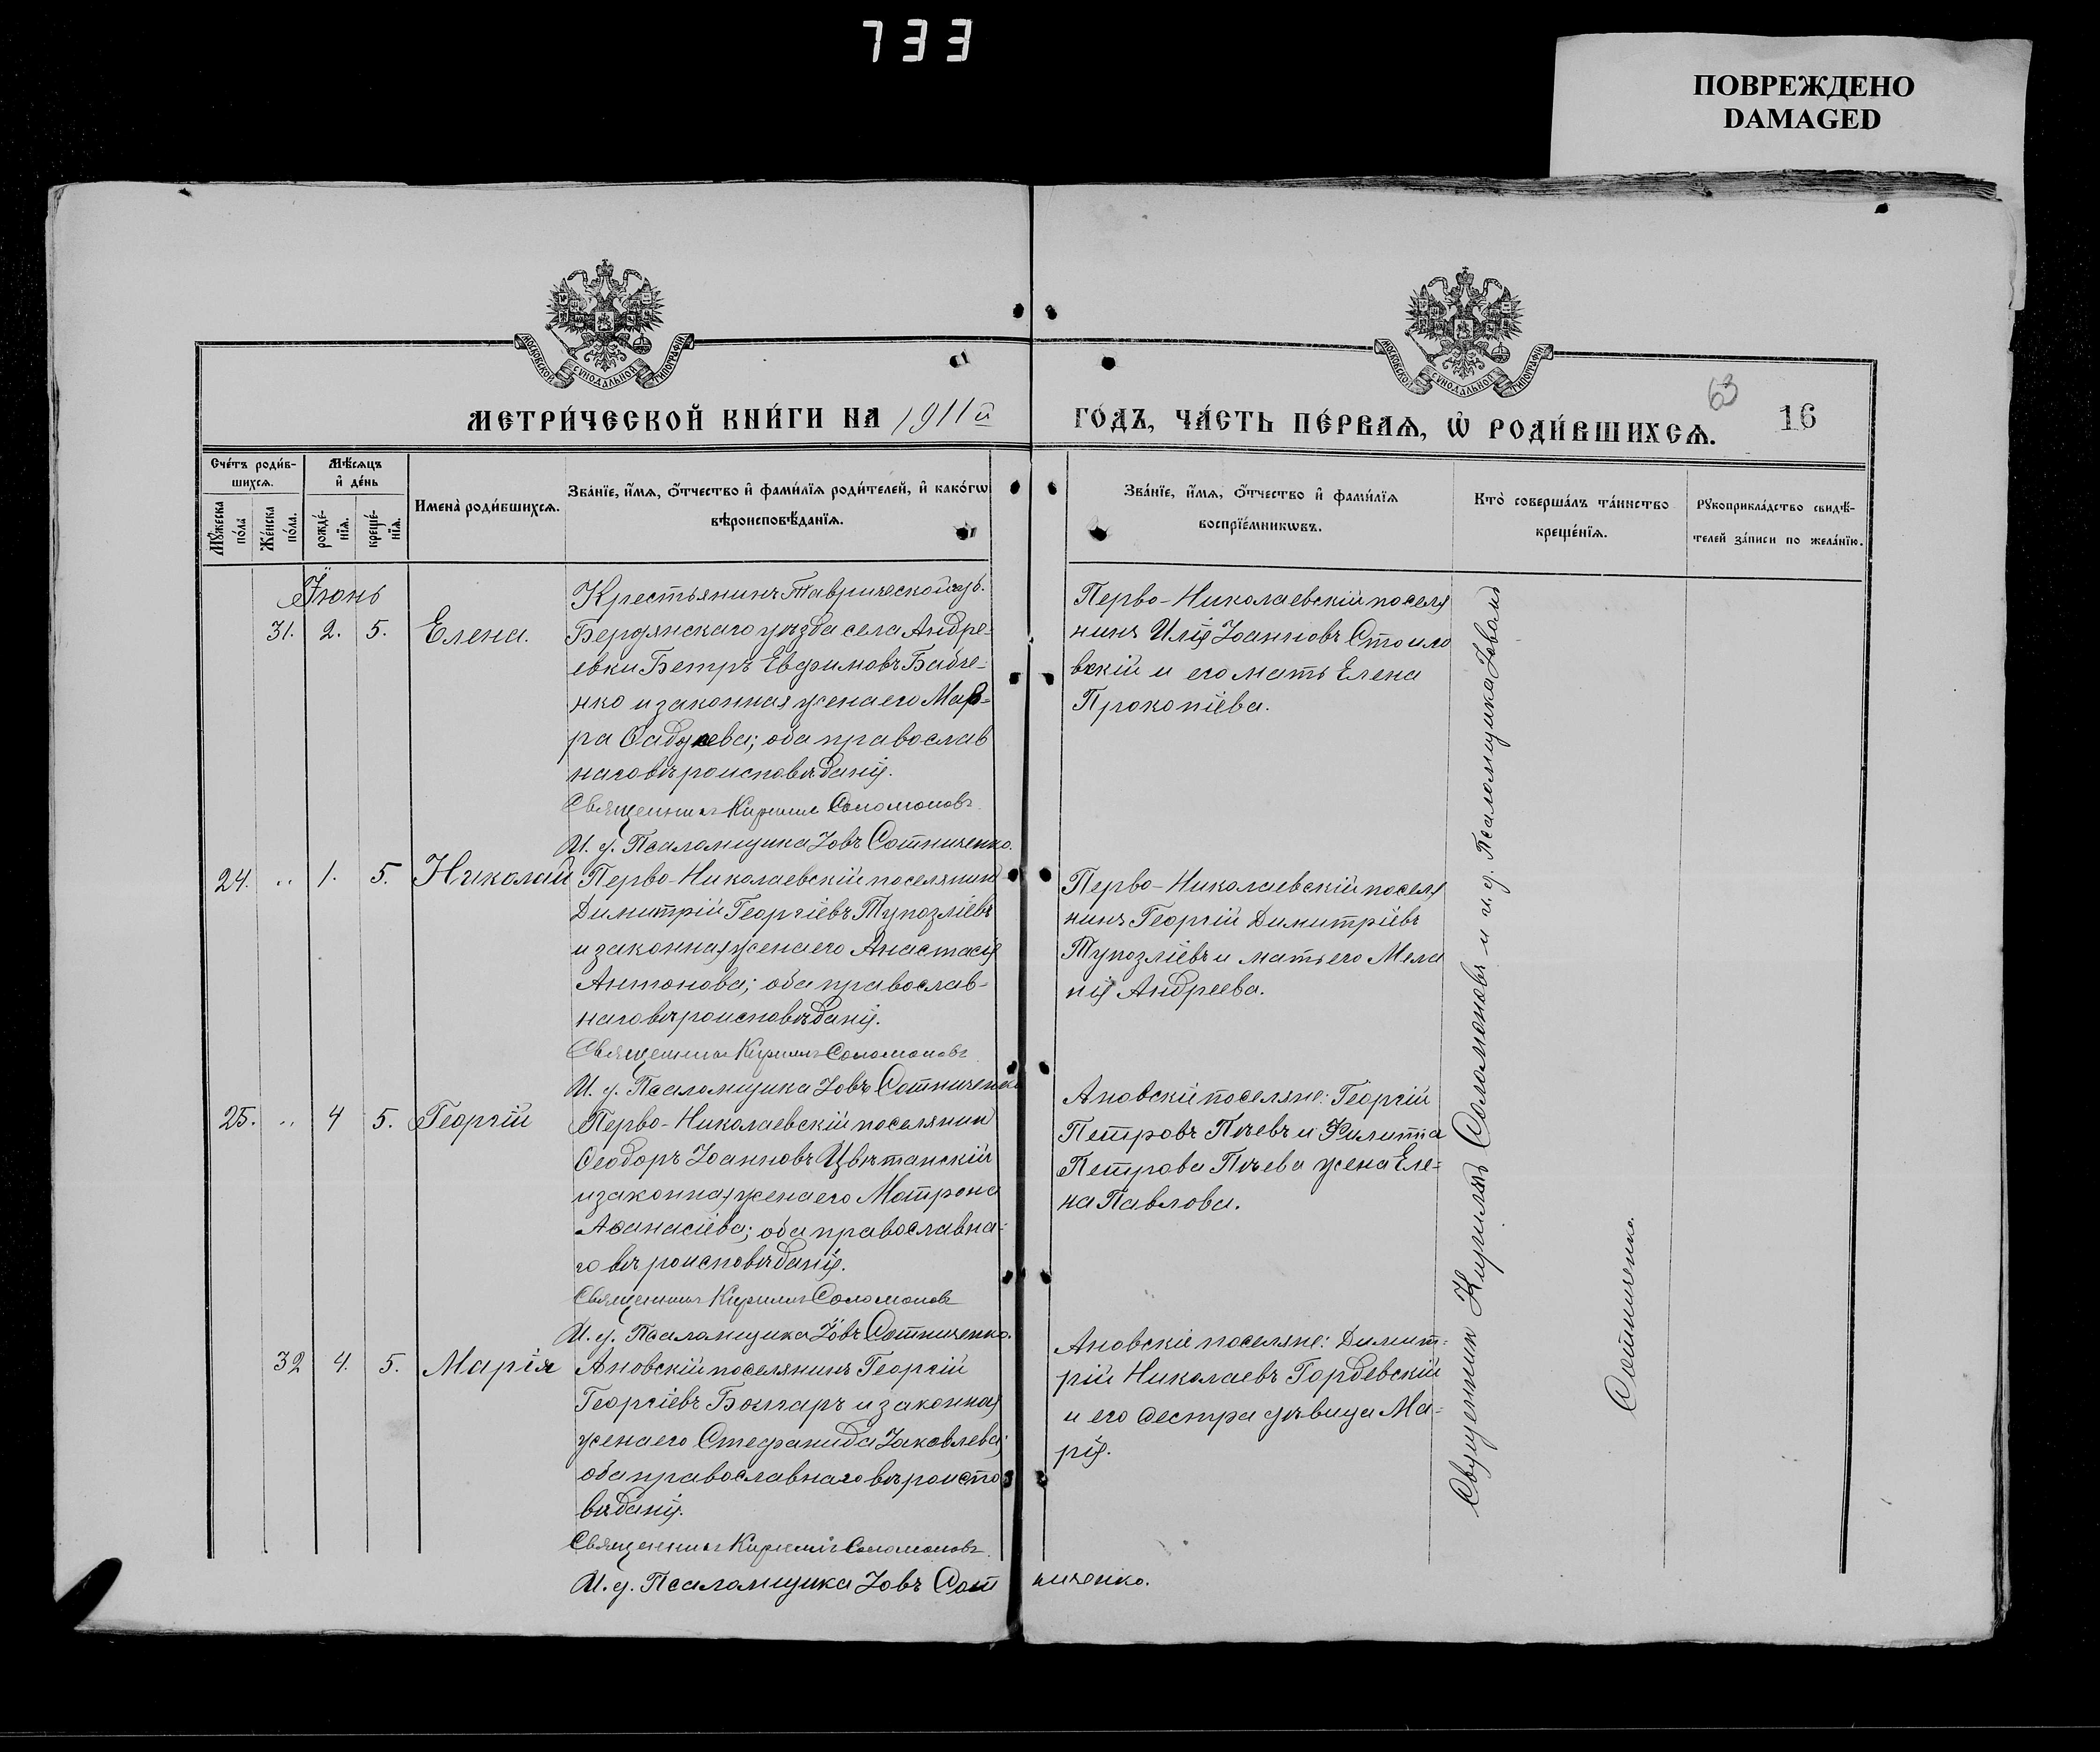 733
ПОВРЕЖДЕНО
DAMAGED
МОСКОВСКОЙ СѴНОДАЛЬНОЙ ТИПОГРАФІИ
МОСКОВСКОЙ СѴНОДАЛЬНОЙ ТИПОГРАФІИ
63
16
МЕТРИ́ЧЕСКОЙ КНИ́ГИ НА 1911й
ГО́ДЪ, ЧА́СТЬ ПЕ́РВАѦ, Ѡ҆ РОДИ́ВШИХСѦ.
Сче́тъ роди́в-
шихсѧ.
Мꙋ́жеска
по́ла
Же́нска
по́ла.
Мѣ́сѧцъ
и҆ де́нь
рожде́-
нїѧ.
креще́-
нїѧ.
Имена̀ роди́вшихсѧ.
Зва́нїе, и҆́мѧ, ѻ҆́тчество и҆ фами́лїѧ роди́телей, и҆ како́гѡ
вѣроисповѣ́данїѧ.
Зва́нїе, и҆́мѧ, ѻ҆́тчество и҆ фами́лїѧ
воспрїе́мникѡвъ.
Кто̀ соверша́лъ та́инство
креще́нїѧ.
Рꙋкоприкла́дство свидѣ́-
телей за́писи по жела́нїю.
Іюнь
31. 2. 5. Елена.
Крестьянинъ Таврической губ.
Бердянскаго уѣзда села Андре-
евки Петръ Евѳимовъ Бабче-
нко и законная жена его Мав-
ра ; оба православ
наго вѣроисповѣданія.
Священникъ Кириллъ Соломоновъ
И. д. Псаломщика Іовъ Сотниченко.
Перво-Николаевскій поселя
нинъ Илія Іоанновъ Стоило
вскій и его мать Елена
Прокопіева.
24. „ 1. 5. Николай
Перво-Николаевскій поселянинъ
Димитрій Георгіевъ Тупозліевъ
и законная жена его Анастасія
Антонова; оба православ-
наго вѣроисповѣданія.
Священникъ Кириллъ Соломоновъ
И. д. Псаломщика Іовъ Сотниченко
Перво-Николаевскій поселя
нинъ Георгій Димитріевъ
Тупозліевъ и мать его Мела
нія Андреева.
25. „ 4 5. Георгій
Перво-Николаевскій поселянинъ
Ѳеодоръ Іоанновъ Цвѣтанскій
и законная жена его Матрона
Аѳанасіева; оба православна-
го вѣроисповѣданія.
Священникъ Кириллъ Соломоновъ
И. д. Псаломщика Іовъ Сотниченко.
Ановскіе поселяне: Георгій
Петровъ Пѣевъ и Филиппа
Петрова Пѣева жена Еле-
на Павлова.
32 4. 5. Марія
Ановскій поселянинъ Георгій
Георгіевъ Болгаръ и законная
жена его Стефанида Іаковлева;
оба православнаго вѣроиспо
вѣданія.
Священникъ Кириллъ Соломоновъ
И. д. Псаломщика Іовъ Сотниченко.
Ановскіе поселяне: Димит-
рій Николаевъ Гордевскій
и его сестра дѣвица Ма-
рія.
Священникъ Кириллъ Соломоновъ и и. д. Псаломщика Іовъ
Сотниченко.